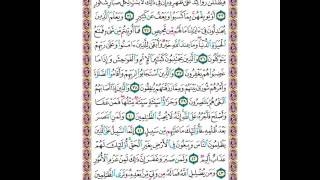 فَيَظْلَلْنَ رَوَاكِدَ عَلَىٰ ظَهْرِهِۦٓ إِنَّ فِى ذَٰلِكَ لَـَٔايَـٰتٍ لِّكُلِّ صَبَّارٍ شَكُورٍ
٣٣ أَوْ يُوبِقْهُنَّ بِمَا كَسَبُوا۟ وَيَعْفُ عَن كَثِيرٍ ٣٤ وَيَعْلَمَ ٱلَّذِينَ
يُجَـٰدِلُونَ فِىٓ ءَايَـٰتِنَا مَا لَهُم مِّن مَّحِيصٍ ٣٥ فَمَآ أُوتِيتُم مِّن شَىْءٍ فَمَتَـٰعُ
ٱلْحَيَوٰةِ ٱلدُّنْيَا وَمَا عِندَ ٱللَّهِ خَيْرٌ وَأَبْقَىٰ لِلَّذِينَ ءَامَنُوا۟ وَعَلَىٰ رَبِّهِمْ
يَتَوَكَّلُونَ ٣٦ وَٱلَّذِينَ يَجْتَنِبُونَ كَبَـٰٓئِرَ ٱلْإِثْمِ وَٱلْفَوَٰحِشَ وَإِذَا مَا
غَضِبُوا۟ هُمْ يَغْفِرُونَ ٣٧ وَٱلَّذِينَ ٱسْتَجَابُوا۟ لِرَبِّهِمْ وَأَقَامُوا۟ ٱلصَّلَوٰةَ
وَأَمْرُهُمْ شُورَىٰ بَيْنَهُمْ وَمِمَّا رَزَقْنَـٰهُمْ يُنفِقُونَ ٣٨ وَٱلَّذِينَ إِذَآ أَصَابَهُمُ
ٱلْبَغْىُ هُمْ يَنتَصِرُونَ ٣٩ وَجَزَٰٓؤُا۟ سَيِّئَةٍ سَيِّئَةٌ مِّثْلُهَا فَمَنْ عَفَا
وَأَصْلَحَ فَأَجْرُهُۥ عَلَى ٱللَّهِ إِنَّهُۥ لَا يُحِبُّ ٱلظَّـٰلِمِينَ ٤٠ وَلَمَنِ ٱنتَصَرَ
بَعْدَ ظُلْمِهِۦ فَأُو۟لَـٰٓئِكَ مَا عَلَيْهِم مِّن سَبِيلٍ ٤١ إِنَّمَا ٱلسَّبِيلُ عَلَى ٱلَّذِينَ
يَظْلِمُونَ ٱلنَّاسَ وَيَبْغُونَ فِى ٱلْأَرْضِ بِغَيْرِ ٱلْحَقِّ أُو۟لَـٰٓئِكَ لَهُمْ
عَذَابٌ أَلِيمٌ ٤٢ وَلَمَن صَبَرَ وَغَفَرَ إِنَّ ذَٰلِكَ لَمِنْ عَزْمِ ٱلْأُمُورِ
٤٣ وَمَن يُضْلِلِ ٱللَّهُ فَمَا لَهُۥ مِن وَلِىٍّ مِّنۢ بَعْدِهِۦ وَتَرَى ٱلظَّـٰلِمِينَ